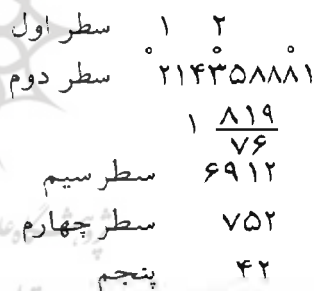 سطر اول ۱ ۲
سطر دوم ۲۱۴۳۵۸۸۸۱
۱ ۸۱۹
۷۶
سطر سیم ۶۹۱۲
سطر چهارم ۷۵۲
پنجم ۴۲